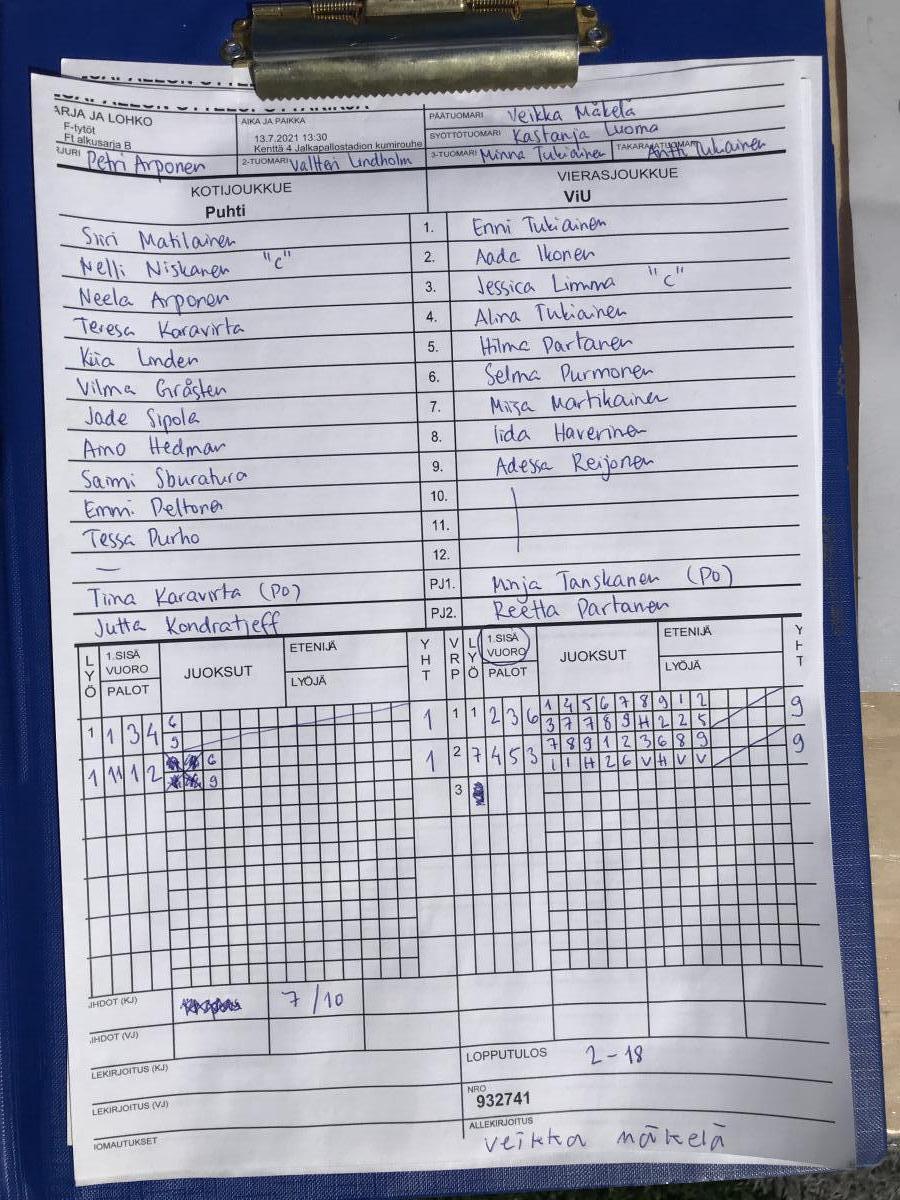 ARJA JA LOHKO
F-tytöt
Ft alkusarja B
AIKA JA PAIKKA
13.7.2021 13:30
Kenttä 4 Jalkapallostadion kumirouhe
PÄÄTUOMARI Veikka Mäkelä
SYÖTTÖTUOMARI Kastanja Luoma
Petri Arponen 2-TUOMARI Valtteri Lindholm 3-TUOMARI Minna Tukiainen TAKARAJATUOMARI Antti Tukiainen
KOTIJOUKKUE VIERASJOUKKUE
Puhti ViU
Siiri Matilainen 1. Enni Tukiainen
Nelli Niskanen "C" 2. Aada Ikonen
Neela Arponen 3. Jessica Limma "C"
Teresa Karavirta 4. Alina Tukiainen
Kiia Linden 5. Hilma Partanen
Vilma Gråsten 6. Selma Purmonen
Jade Sipola 7. Miisa Martikainen
Aino Hedman 8. Iida Haverinen
Sanni Sburatura 9. Adessa Reijonen
Emmi Peltonen 10.
Tessa Purho 11.
— 12.
Tiina Karavirta (PO) PJ1. Minja Tanskanen (PO)
Jutta Kondratjeff PJ2. Reetta Partanen
LYÖ 1.SISÄ VUORO PALOT JUOKSUT ETENIJÄ LYÖJÄ YHT VRP LYÖ 1.SISÄ VUORO PALOT JUOKSUT ETENIJÄ LYÖJÄ YHT
1 1 3 4 6 1 1 1 2 3 6 1 4 5 6 7 8 9 1 2 9
9 3 7 7 8 9 H 2 2 5
1 11 1 2 6 1 2 7 4 5 3 7 8 9 1 2 3 6 8 9 9
9 1 1 H 2 6 V H V V
3
JHDOT (KJ) 7/10
JHDOT (VJ)
LEKIRJOITUS (KJ)
LOPPUTULOS 2-18
LEKIRJOITUS (VJ)
NRO
932741
IOMAUTUKSET
ALLEKIRJOITUS
Veikka Mäkelä